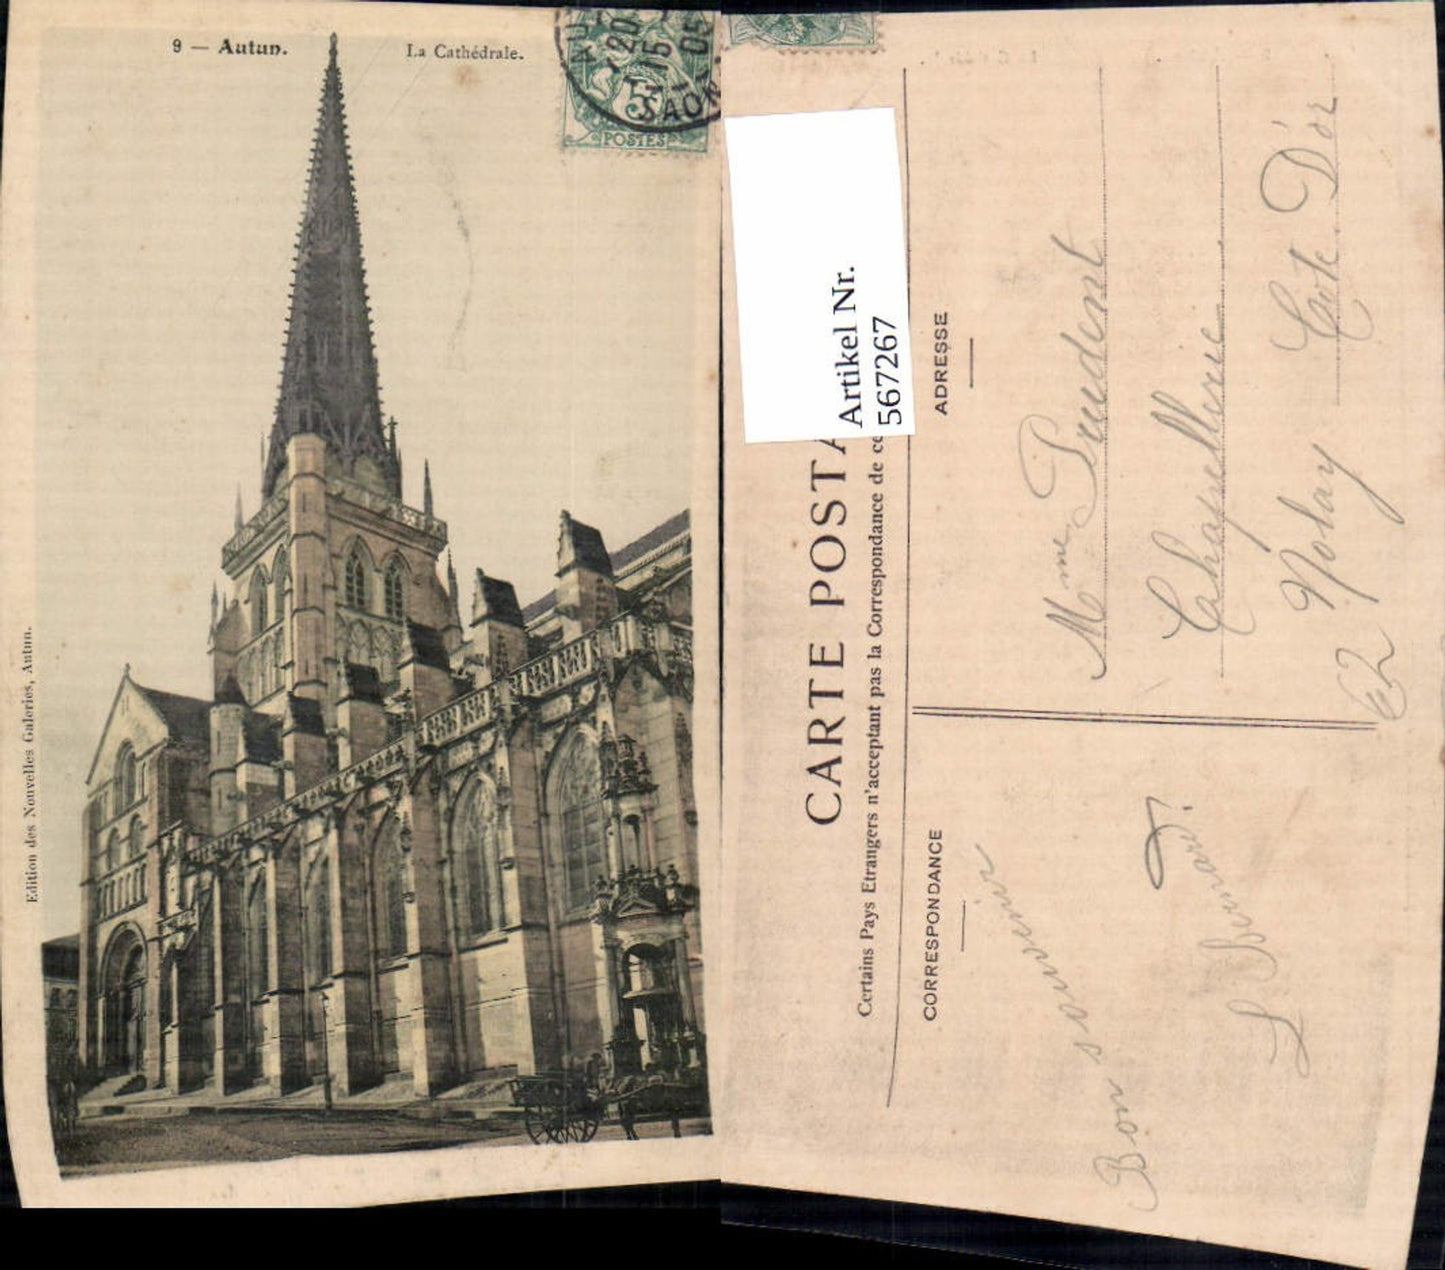 9 — Autun.
La Cathédrale.
20
15
05
SAON
5
POSTES
Edition des Nouvelles Galeries, Autun.
Artikel Nr.
567267
CARTE POSTA
Certains Pays Etrangers n'acceptant pas la Correspondance de ce
CORRESPONDANCE
ADRESSE
Bon souvenir
Mme Prudent
Chapellerie
Nolay
Cote D'or